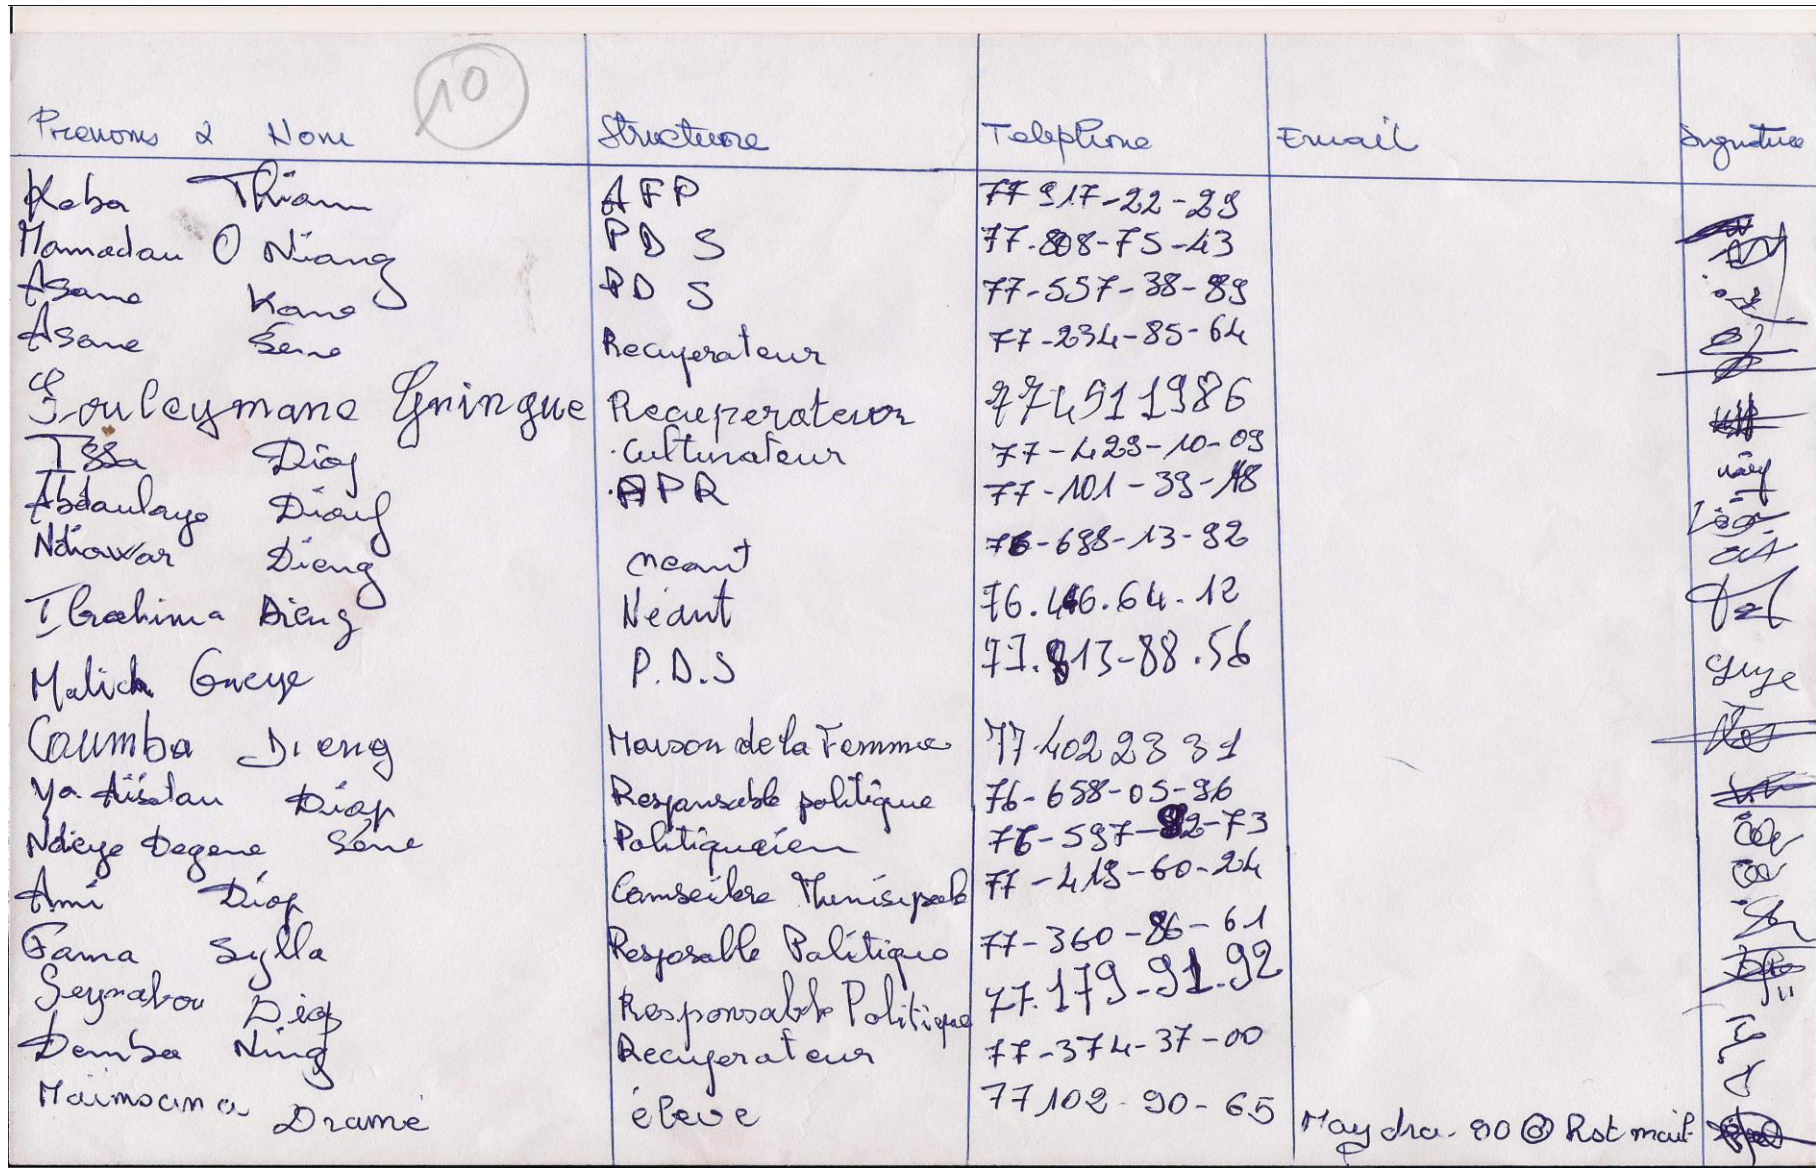 10
Prenoms & Nom Structure Telephone Email Signature
Keba Thiam AFP 77 917-22-29
Mamadou O Niang PDS 77.808-75-43
Asane Kane PDS 77-557-38-89
Asane Sene Recuperateur 77-234-85-64
Souleymane Gningue Recuperateur 774911986
Issa Diop Cultivateur 77-423-10-09
Abdoulaye Diouf APR 77-101-39-18
Ndiawar Dieng neant 76-698-13-92
Ibrahima Dieng Néant 76.446.64.12
Malick Gueye P.D.S 77.813-88.56 gueye
Coumba Dieng Maison de la Femme 77.402 23 31
Ya Aïssatou Diop Responsable politique 76-658-05-96
Ndeye Degene Sène Politiqueien 76-597-92-73
Ami Diop Conseillere Munisipale 77-419-60-24
Fama Sylla Resposable Politique 77-360-86-61
Seynabou Diop Responsable Politique 77.179-91.92
Demba Ning Recuperateur 77-374-37-00
Maimouna Dramé élève 77 102-90-65 May dra.90@hotmail